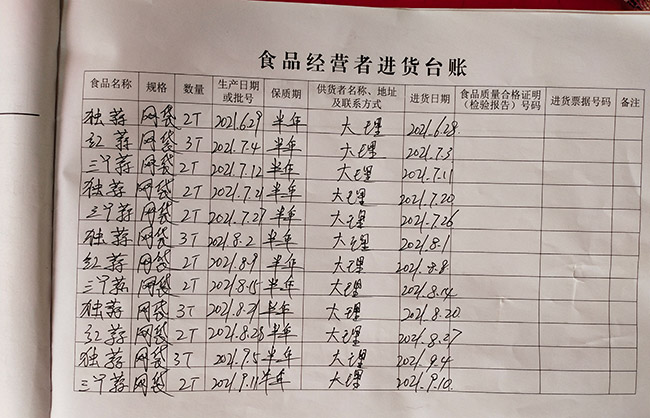 食品经营者进货台账
食品名称 规格 数量 生产日期或批号 保质期 供货者名称、地址及联系方式 进货日期 食品质量合格证明（检验报告）号码 进货票据号码 备注
独蒜 网袋 2T 2021.6.29 半年 大理 2021.6.28
红蒜 网袋 3T 2021.7.4 半年 大理 2021.7.3
三丫蒜 网袋 2T 2021.7.12 半年 大理 2021.7.11
独蒜 网袋 2T 2021.7.21 半年 大理 2021.7.20
三丫蒜 网袋 2T 2021.7.27 半年 大理 2021.7.26
独蒜 网袋 3T 2021.8.2 半年 大理 2021.8.1
红蒜 网袋 2T 2021.8.9 半年 大理 2021.8.8
三丫蒜 网袋 2T 2021.8.15 半年 大理 2021.8.14
独蒜 网袋 3T 2021.8.21 半年 大理 2021.8.20
红蒜 网袋 2T 2021.8.28 半年 大理 2021.8.27
独蒜 网袋 3T 2021.7.5 半年 大理 2021.9.4
三丫蒜 网袋 2T 2021.9.11 半年 大理 2021.9.10